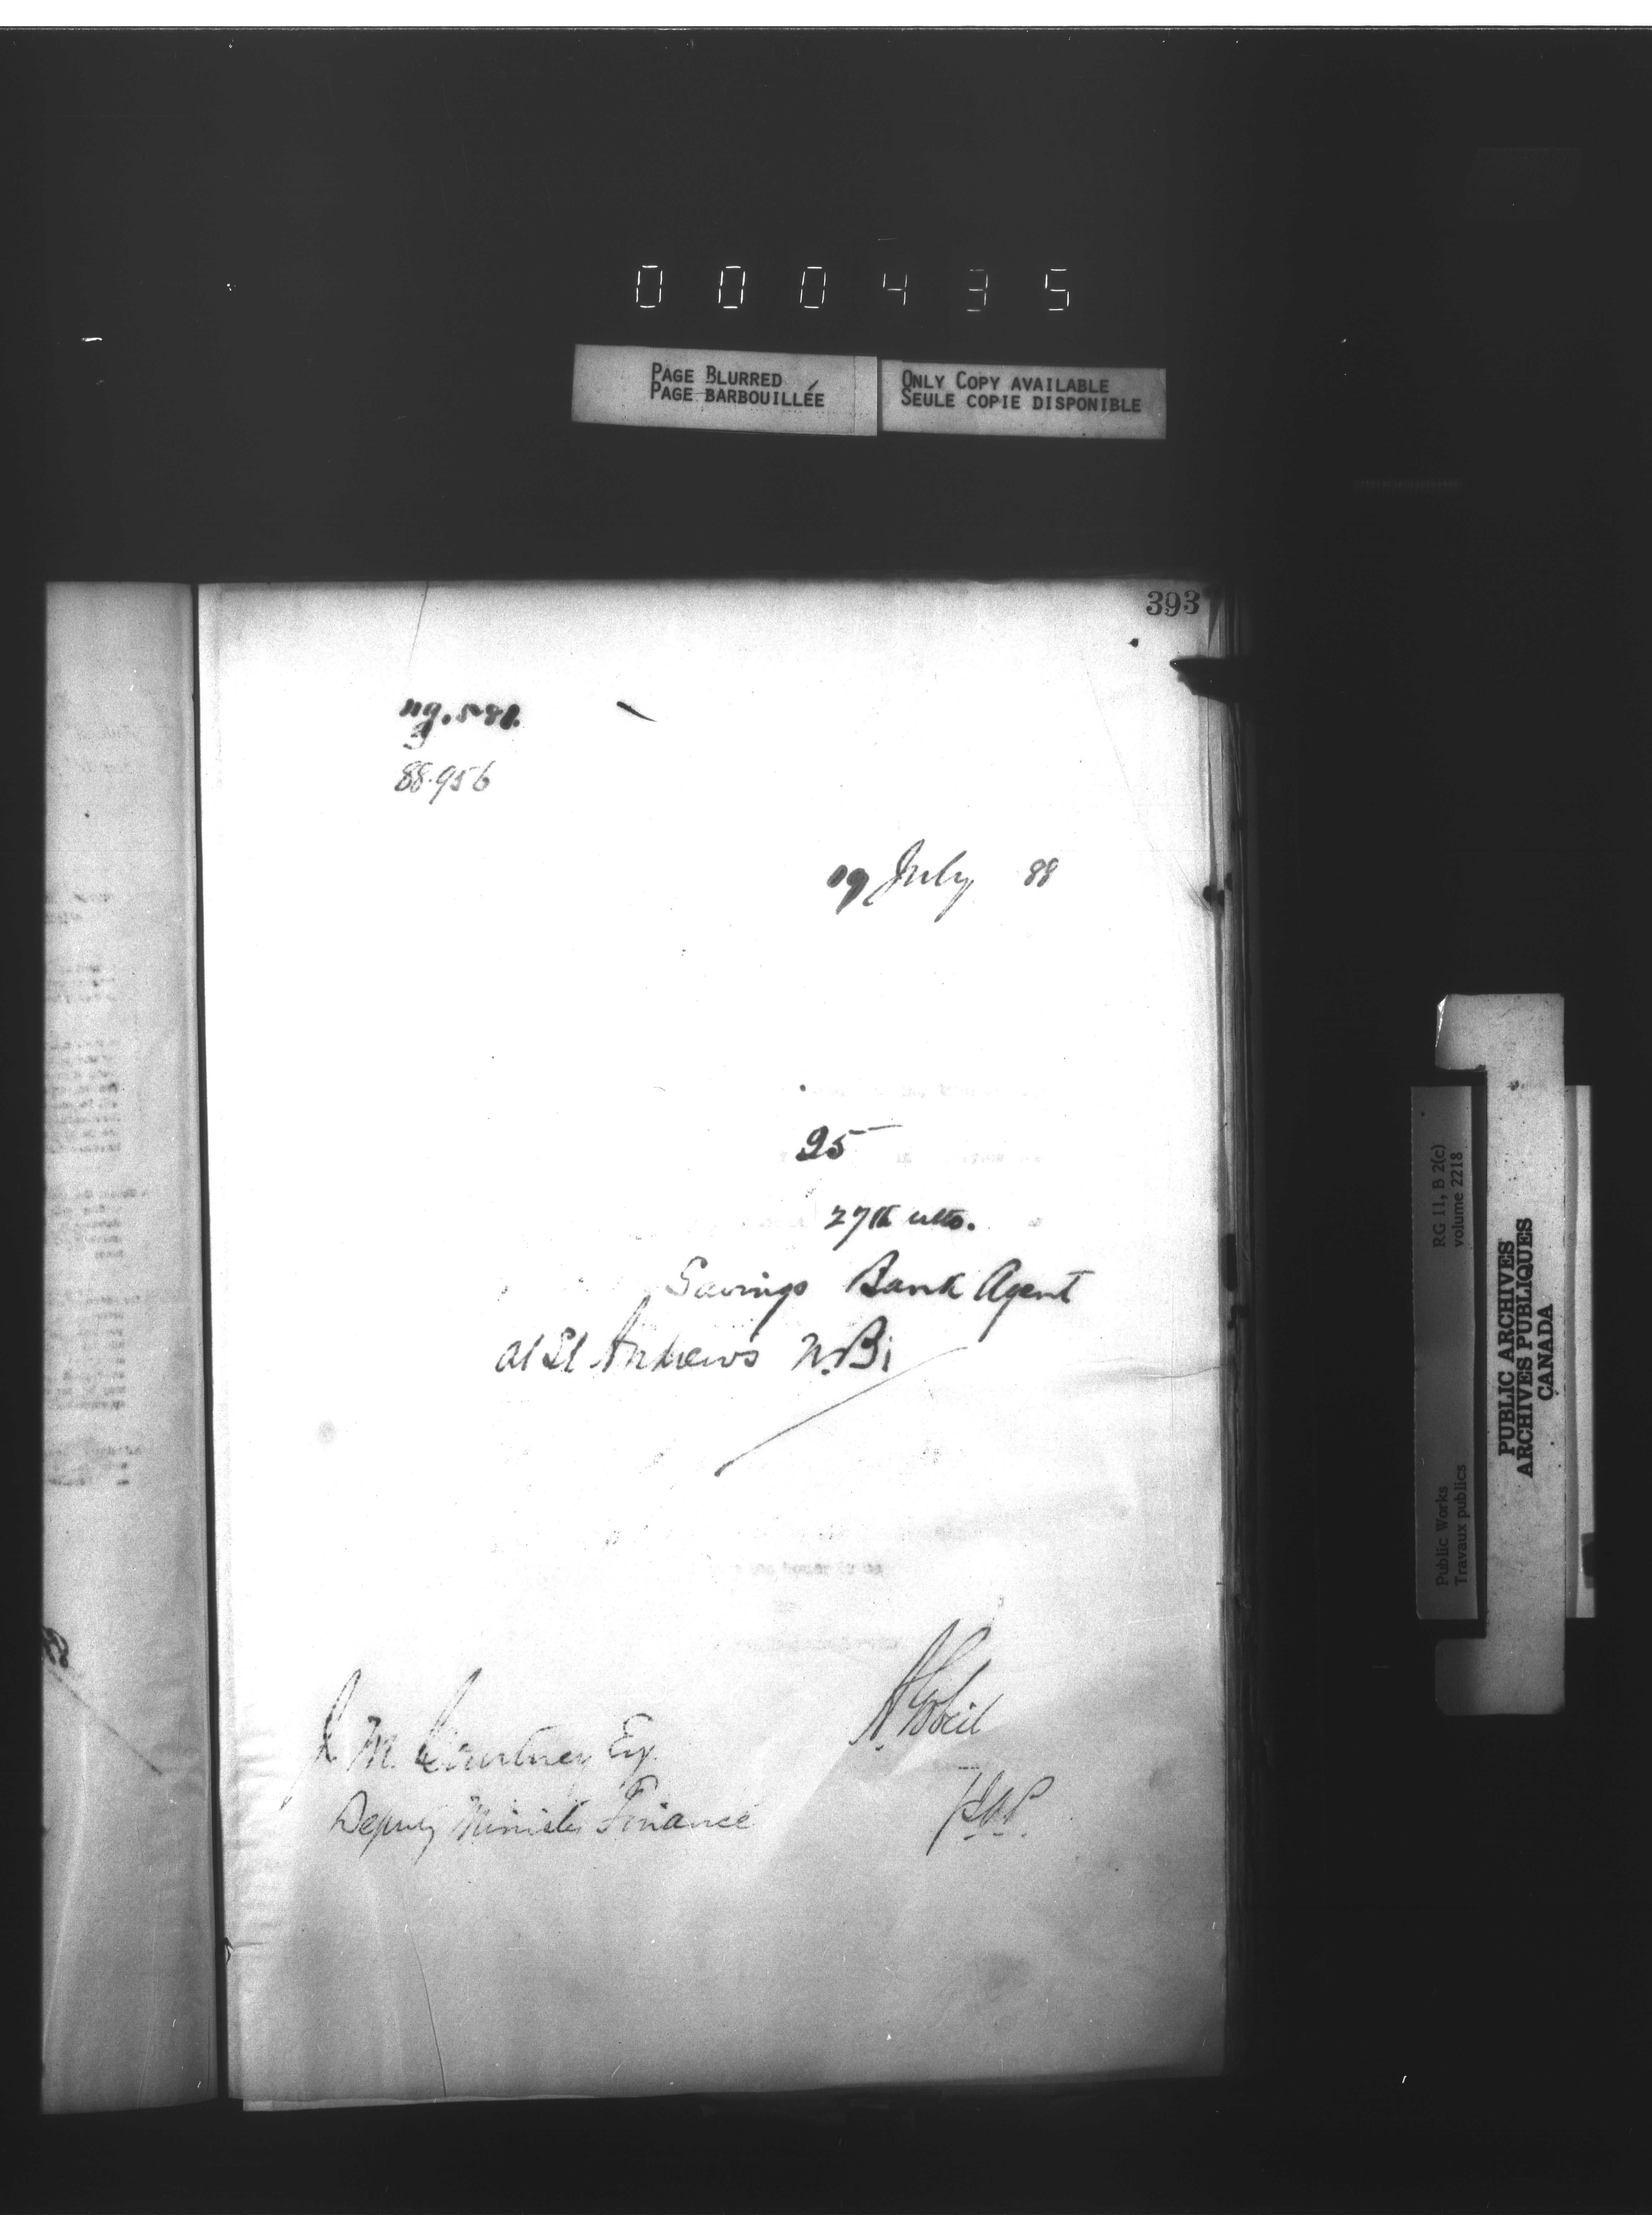 000435
PAGE BLURRED
PAGE BARBOUILLÉE
ONLY COPY AVAILABLE
SEULE COPIE DISPONIBLE
393
88.956
19 July 88
25
27th ulto.
Savings Bank Agent
at St Andrews N.B.
A Gobeil
J. M. Courtney Esq.
Deputy Minister Finance
RG 11, B 2(c)
volume 2218
Public Works
Travaux publics
PUBLIC ARCHIVES
ARCHIVES PUBLIQUES
CANADA